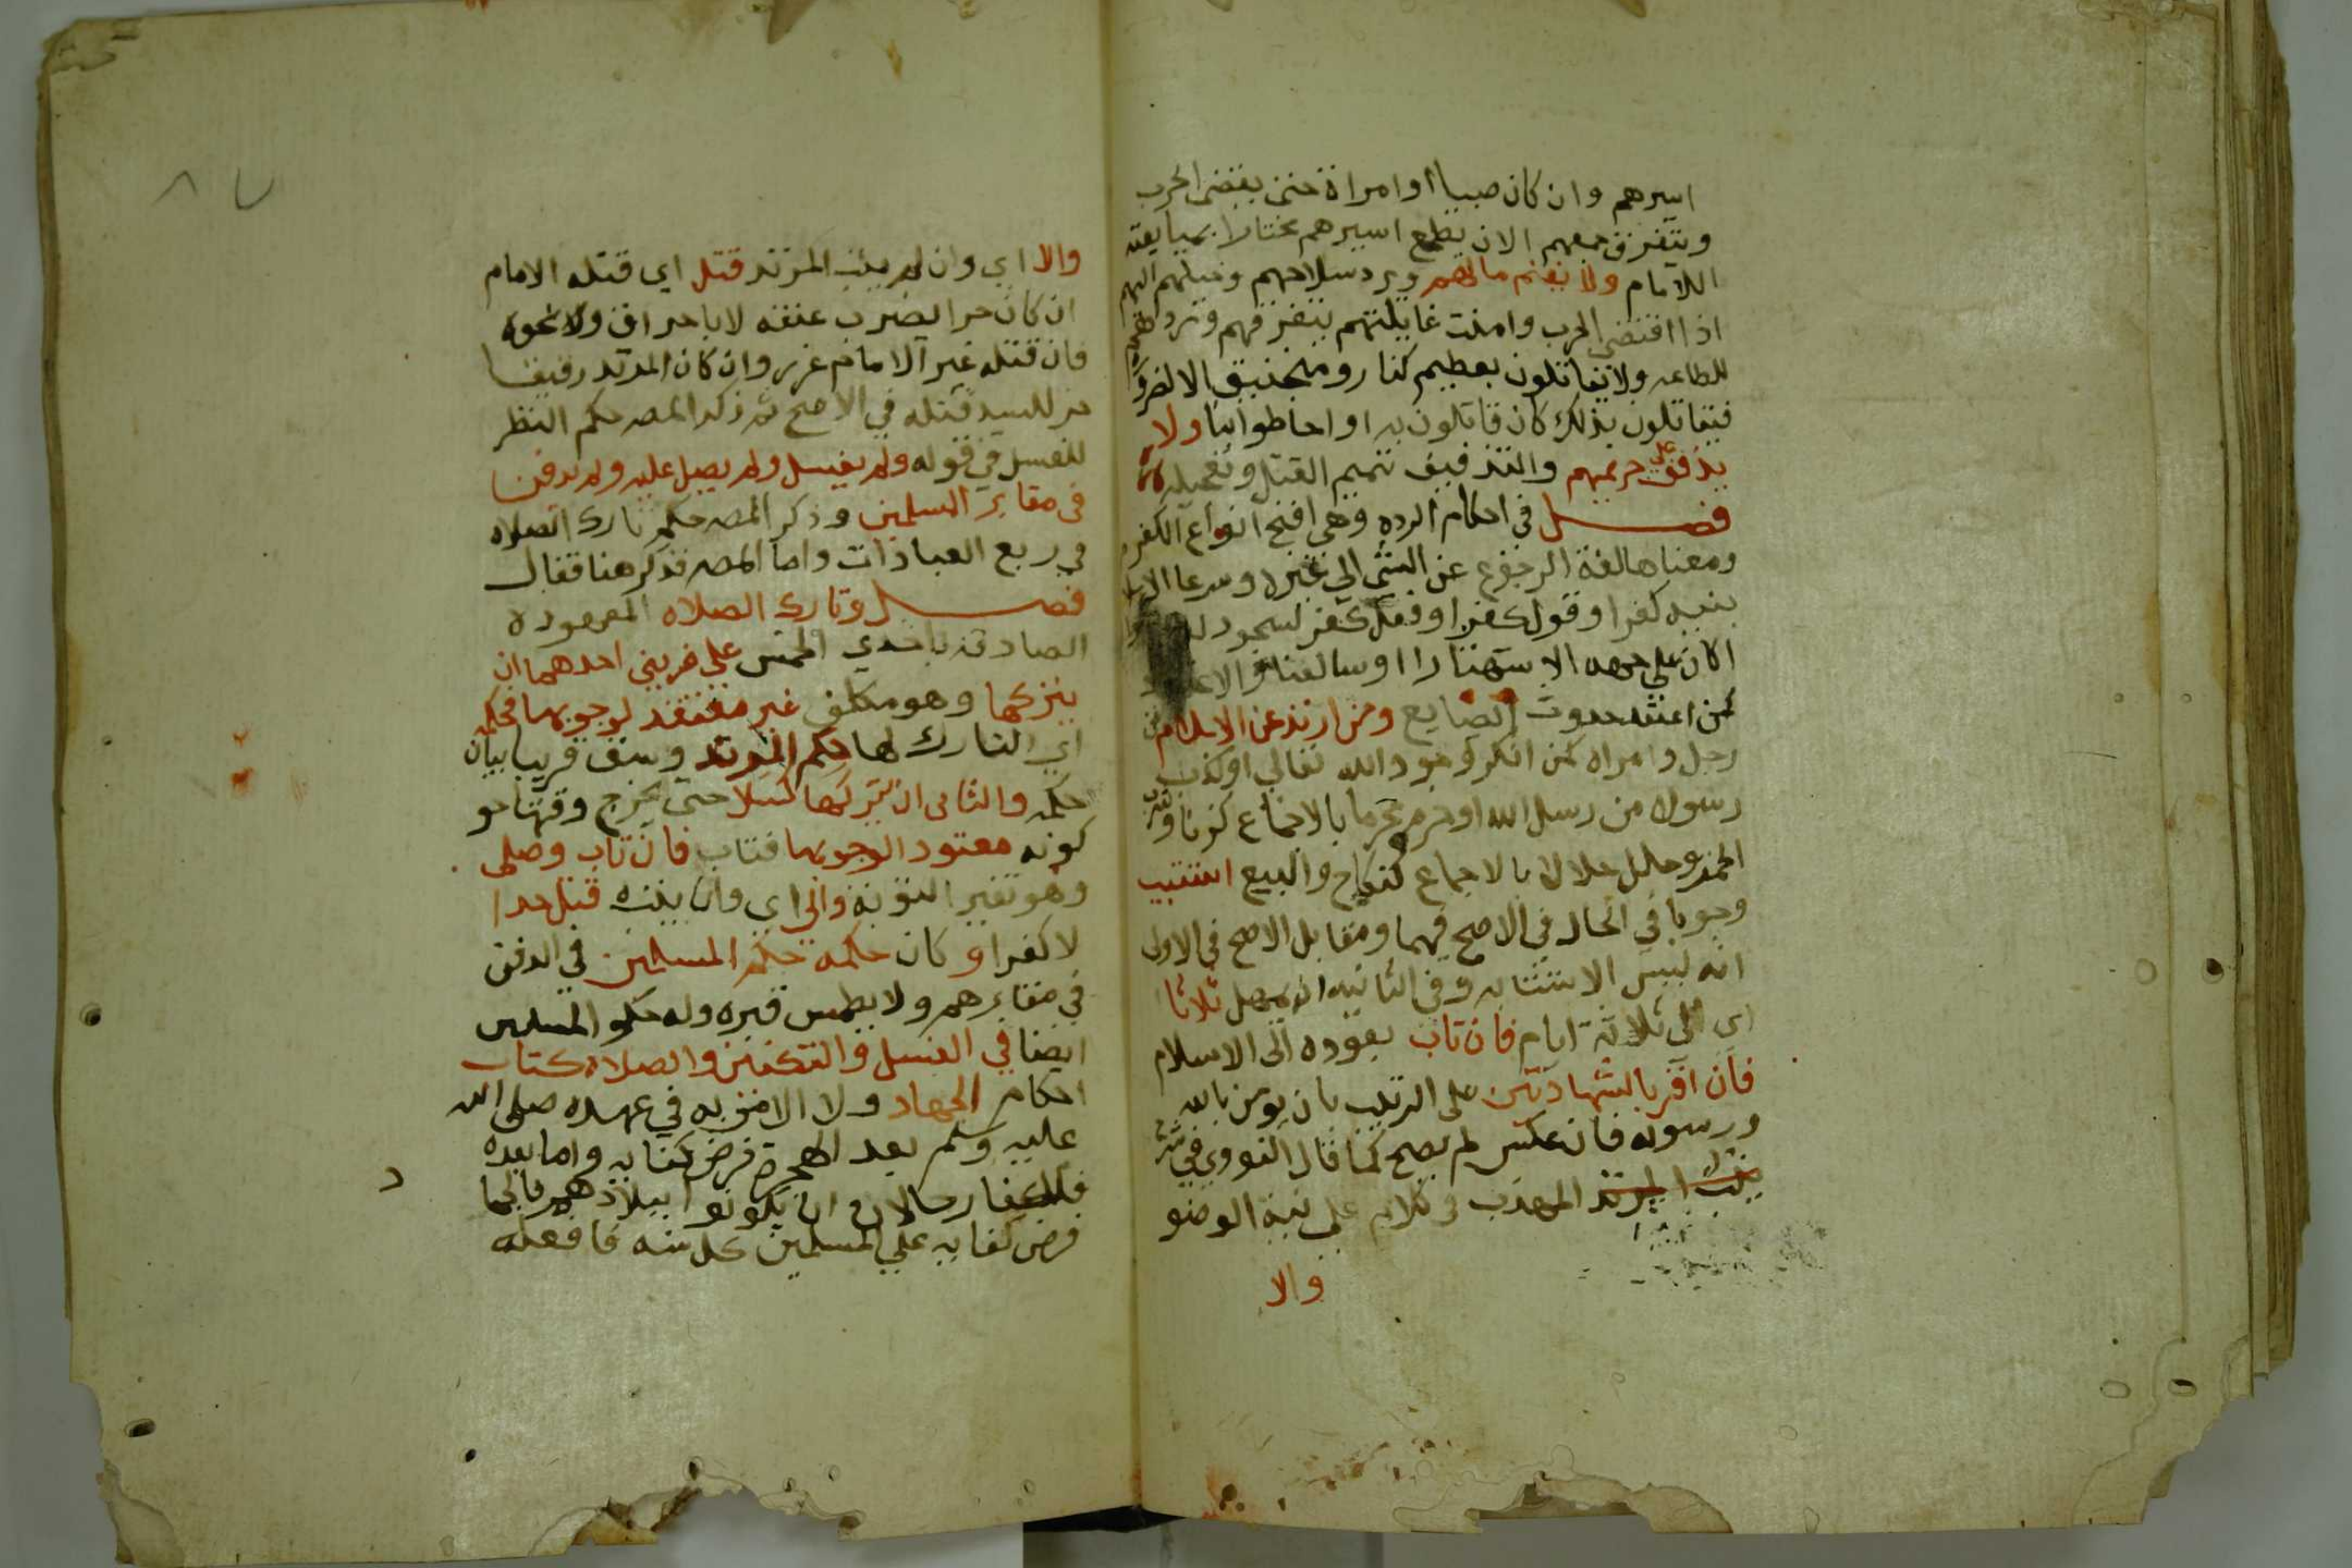 اسيرهم وان كان صبيا او امراة حتى ينقضي الحرب
ويتفرق جمعهم الا ان يطيع اسيرهم مختارا بمبايعته
للامام ولا يغنم مالهم ويرد سلاحهم وخيلهم اليهم
اذا انقضى الحرب وامنت غايلتهم بتفرقهم وردهم
للطاعه ولا يقاتلون بعظيم كنار ومنجنيق الا لضرورة
فيقاتلون بذلك كان قاتلونا به او احاطوا بنا ولا
يذفف على جريحهم والتذفيف تتميم القتل وتعجيله
فصل في احكام الرده وهي افحش انواع الكفر
ومعناها لغة الرجوع عن الشي الى غيره وشرعا
بنيه كفر او قول كفر او فعل كفر لسجود
اكان على جهه الاستهزا او العناد او الاعتقاد
كمن اعتقد حدوث الصانع ومن ارتد عن الاسلام من
رجل وامراه كمن انكر وجود الله تعالى او كذب
رسولا من رسل الله او حرم محرما بالاجماع كزنا وشرب
الخمر او حلل حلالا بالاجماع كنكاح والبيع استتيب
وجوبا في الحال في الاصح فيهما ومقابل الاصح في الاولى
انه ليس الاستتابه وفي الثانيه انه يمهل ثلاثا
اي الى ثلاثة ايام فان تاب بعوده الى الاسلام
فان اقر بالشهادتين على الترتيب بان يؤمن بالله
ورسوله فان عكس لم يصح كما قال النووي في شرح
المهذب في كلامه على نية الوضو
والا
والا اي وان لم يتب المرتد قتل اي قتله الامام
ان كان حرا بضرب عنقه لا باحراق ولا نحوه
فان قتله غير الامام عزر وان كان المرتد رقيقا
جز للسيد قتله في الاصح ثم ذكر المصـ حكم النظر
للغسل في قوله ولم يغسل ولم يصل عليه ولم يدفن
في مقابر المسلمين وذكر المصـ حكم تارك الصلاه
في ربع العبادات واما المصـ فذكر هنا فقال
فصل وتارك الصلاه المعهوده
الصادقه باحدي الخمس على ضربين احدهما ان
يتركها وهو مكلف غير معتقد لوجوبها فحكمه
اي التارك لها حكم المرتد وسبق قريبا بيان
حكمه والثاني ان يتركها كسلا حتى يخرج وقتها حو
كونه معتقد الوجوبها فتاب فان تاب وصلى
وهو تفسير التوبة والا اي وان لم يتب قتل حدا
لا كفرا و كان حكمه حكم المسلمين في الدفن
في مقابرهم ولا يطمس قبره وله حكم المسلمين
ايضا في الغسل والتكفين والصلاة كتاب
احكام الجهاد و الامر به في عهده صلى الله
عليه وسلم بعد الهجرة فرض كفايه واما بعده
فللكفار حالان ان يكونوا ببلادهم فالجها
د
فرض كفايه على المسلمين كل سنه فا فعله
٨٧